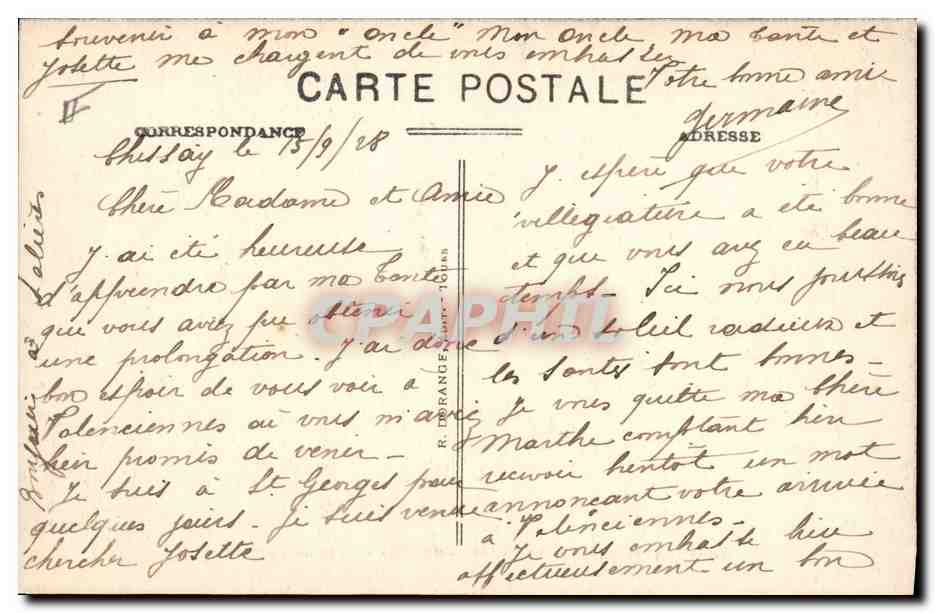 Souvenir à mon "oncle" Mon oncle ma tante et
Josette me chargent de vous embrasser
Votre bonne amie
Germaine
CARTE POSTALE
CORRESPONDANCE
ADRESSE
Chissay le 15/9/28
Chère Madame et Amie
J'ai été heureuse
d'apprendre par ma tante
que vous aviez pu obtenir
une prolongation. J'ai donc
bon espoir de vous voir à
Valenciennes où vous m'aviez
bien promis de venir -
Je suis à St Georges pour
quelques jours - Je suis venue
chercher Josette
J'espère que votre
villégiature a été bonne
et que vous avez eu beau
temps - Ici nous jouissons
d'un soleil radieux et
les santés sont bonnes -
Je vous quitte ma chère
Marthe comptant bien
recevoir bientôt un mot
annonçant votre arrivée
à Valenciennes -
Je vous embrasse bien
affectueusement - un bon
R. DORANGE, EDIT. - TOURS
CPAPHIL